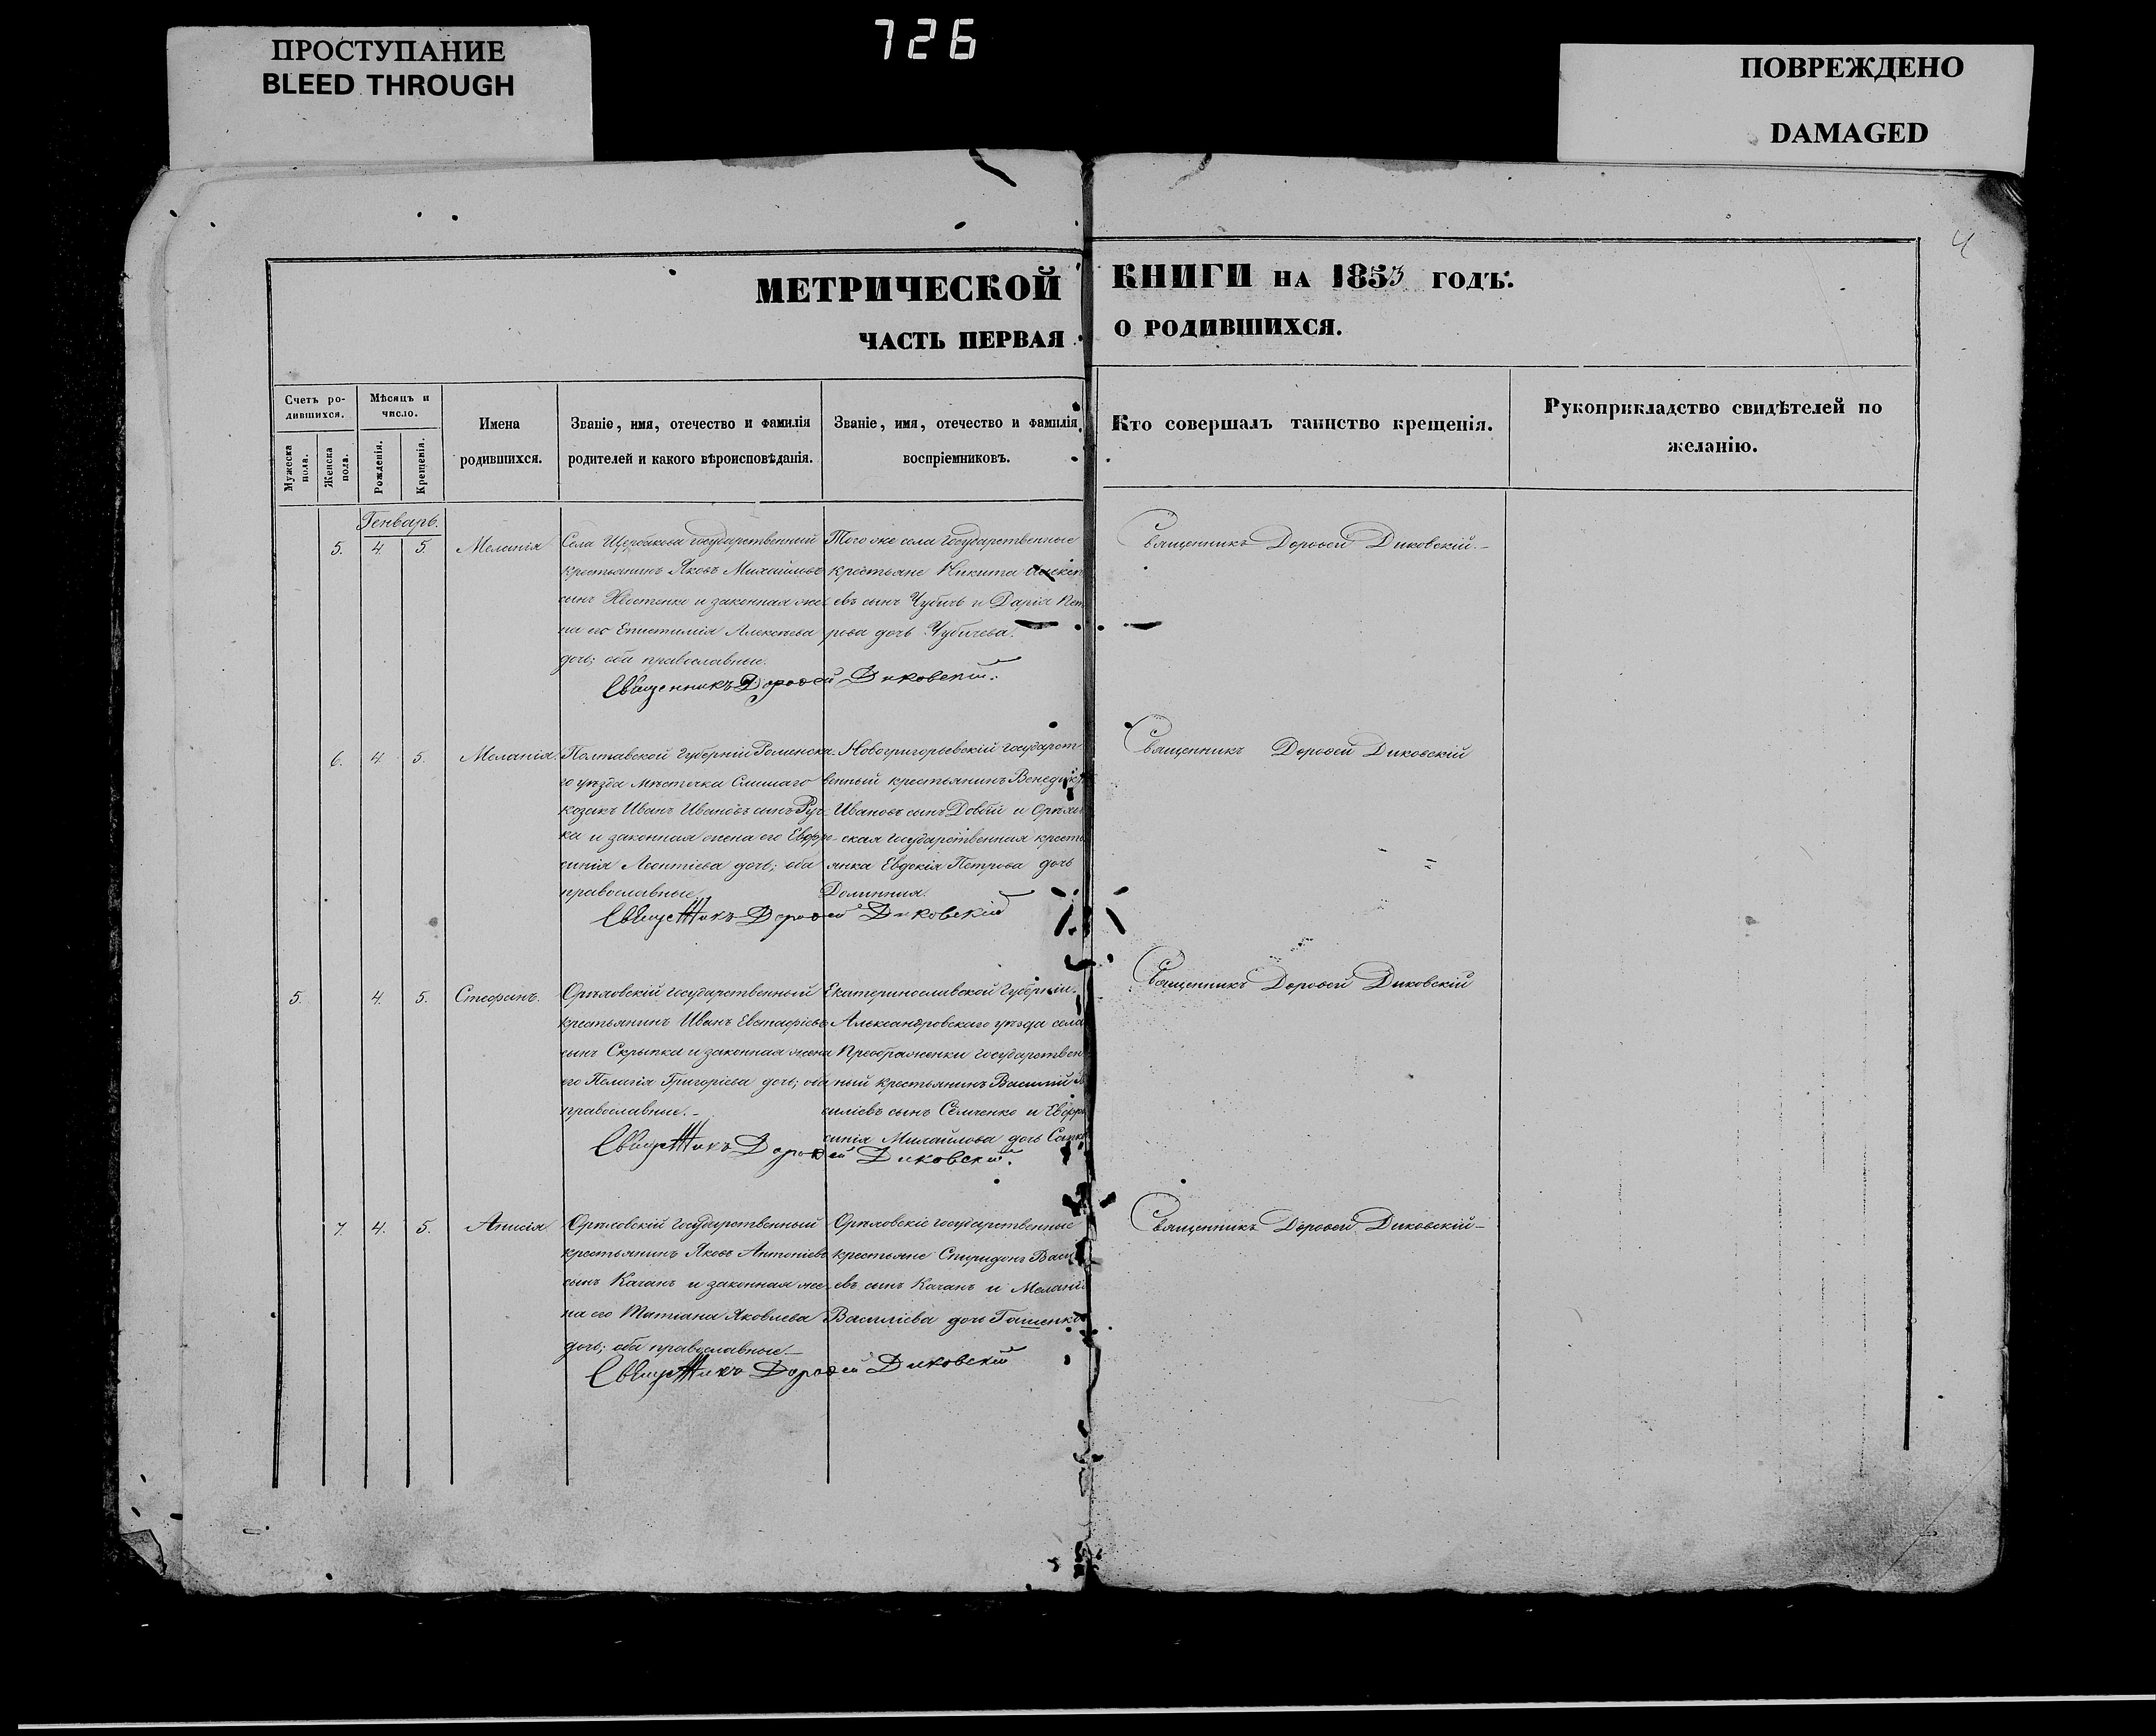 ПРОСТУПАНИЕ
BLEED THROUGH
726
ПОВРЕЖДЕНО
DAMAGED
4
МЕТРИЧЕСКОЙ КНИГИ НА 1853 ГОДЪ.
ЧАСТЬ ПЕРВАЯ О РОДИВШИХСЯ.
Счетъ ро-
дившихся.
Мужеска
пола.
Женска
пола.
Мѣсяцъ и
число.
Рожденія.
Крещенія.
Имена
родившихся.
Званіе, имя, отечество и фамилія
родителей и какого вѣроисповѣданія.
Званіе, имя, отечество и фамилія
воспріемниковъ.
Кто совершалъ таинство крещенія.
Рукоприкладство свидѣтелей по
желанію.
Генварь.
5. 4 5. Меланія
Села Щербакова государственный
крестьянинъ Яковъ Михайловъ
сынъ Хвостенко и законная же-
на его Епистимія Алексѣева
дочь; оба православные.
Того же села государственные
крестьяне Никита
евъ сынъ Чубичъ и Дарія Пет
рова дочь Чубичева.
Священникъ Дороѳей Диковскій.
Священникъ Дороѳей Диковскій.-
6. 4 5. Меланія.
Полтавской Губерніи Роменска-
го уѣзда мѣстечка Смѣлаго
козакъ Иванъ Ивановъ сынъ
ка и законная жена его Евфро-
синія Леонтіева дочь; оба
православные
Новогригорьевскій государст
венный крестьянинъ Венедикт
Ивановъ сынъ Довгій и Орѣхов
ская государственная кресть
янка Евдокія Петрова дочь
Долинная.
Священникъ Дороѳей Диковскій
Священникъ Дороѳей Диковскій
5. 4. 5. Стефанъ.
Орѣховскій государственный
крестьянинъ Иванъ Евстафіевъ
сынъ Скрыпка и законная жена
его Пелагія Григоріева дочь; оба
православные.-
Екатеринославской Губерніи
Александровскаго уѣзда села
Преображенки государствен
ный крестьянинъ Василій Ва
силіевъ сынъ Семченко и Евфро
синія Михайлова дочь
Священникъ Дороѳей Диковскій.
Священникъ Дороѳей Диковскій
7. 4. 5. Анисія
Орѣховскій государственный
крестьянинъ Яковъ Антоніевъ
сынъ Качанъ и законная же-
на его Татіана Яковлева
дочь; оба православные.-
Орѣховскіе государственные
крестьяне Спиридонъ Васил
евъ сынъ Качанъ и Меланія
Василіева дочь
Священникъ Дороѳей Диковскій
Священникъ Дороѳей Диковскій-